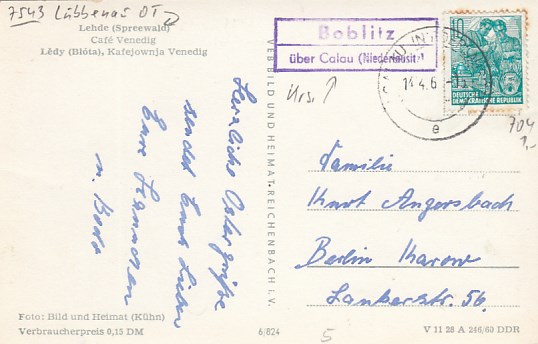 7543 Lübbenau OT
Lehde (Spreewald)
Café Venedig
Lědy (Błóta), Kafejownja Venedig
Boblitz
über Calau (Niederlausitz)
10
DEUTSCHE
DEMOKRATISCHE REPUBLIK
14.4.6
e
Urs.
704
1,-
Herzliche Ostergrüße
sendet Euch Lieben
Eure
u.
VEB BILD UND HEIMAT REICHENBACH i. V.
Familie
Kurt Angersbach
Berlin Karow
Lankerstr. 56.
Foto: Bild und Heimat (Kühn)
Verbraucherpreis 0,15 DM
6/824
5
V 11 28 A 246/60 DDR